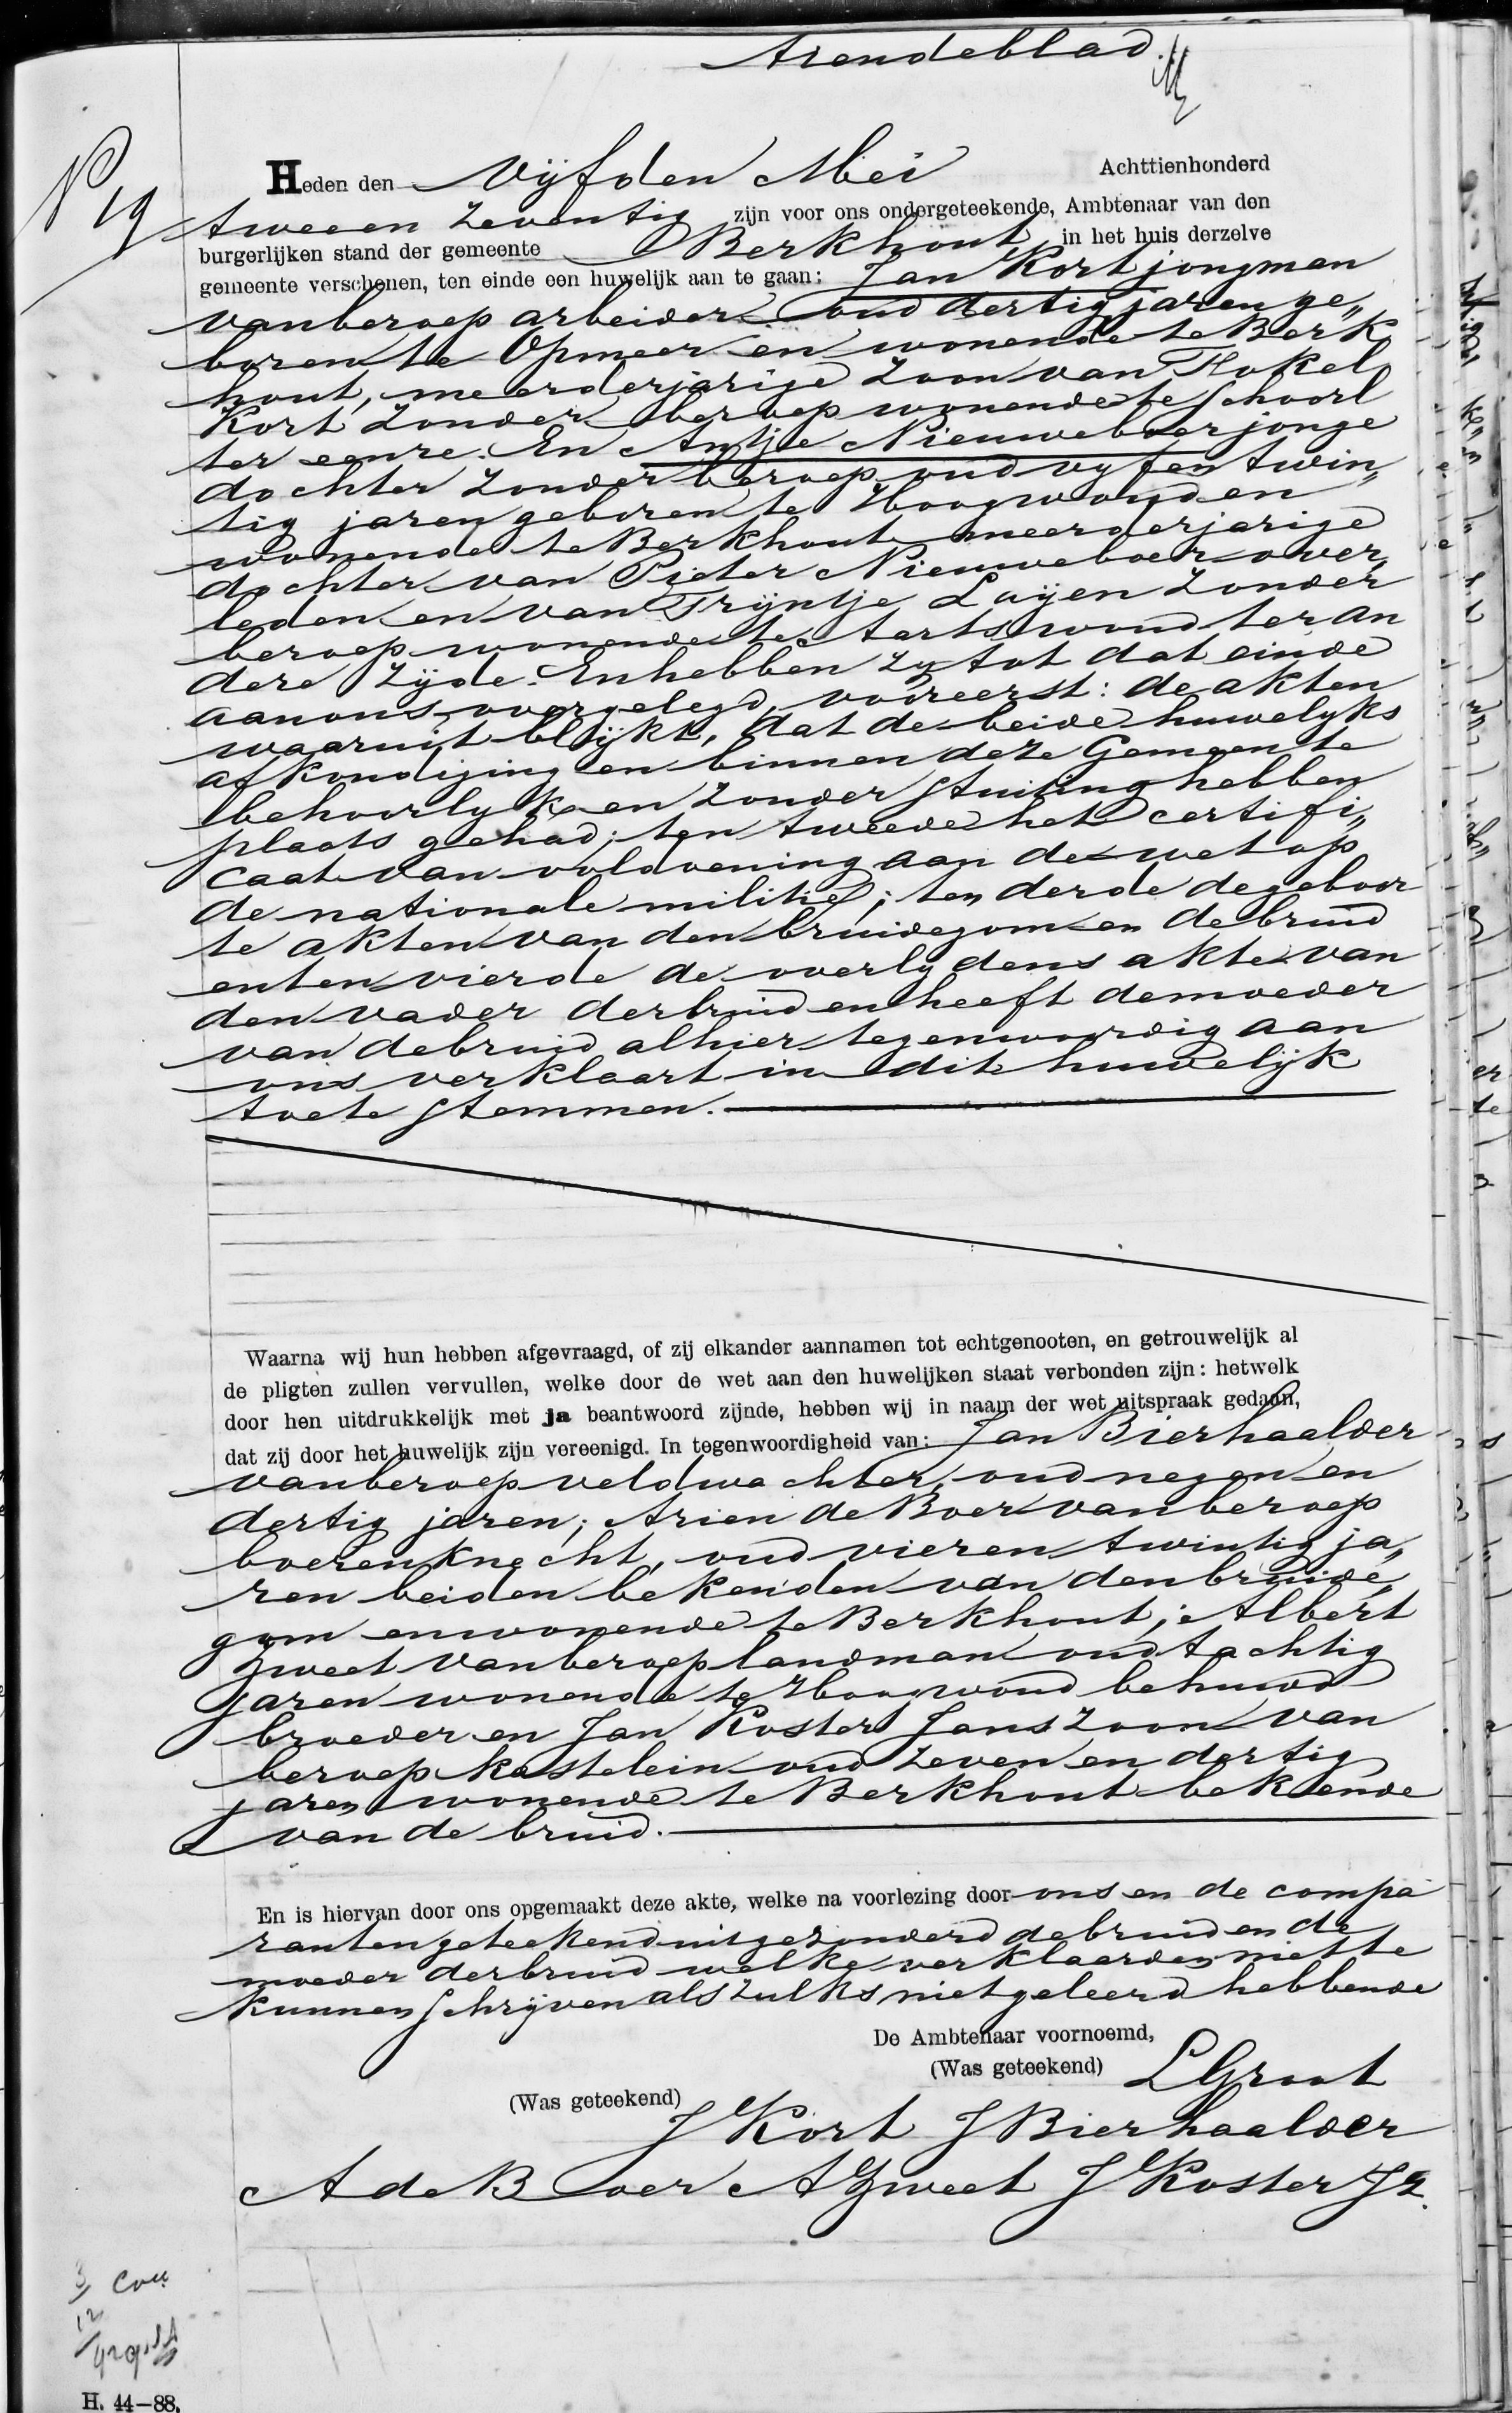 Arendeblad.
No 19
Heden den Vijfden Mei Achttienhonderd
twee en zeventig zijn voor ons ondergeteekende, Ambtenaar van den
burgerlijken stand der gemeente Berkhout in het huis derzelve
gemeente verschenen, ten einde een huwelijk aan te gaan: Jan Kort jongman
van beroep arbeider oud dertig jaren ge„
boren te Opmeer en wonende te Berk
hout, meerderjarige zoon van Hokel
Kort zonder beroep wonende te Schoorl
ter eenre. En Antje Nieuweboer jonge
dochter zonder beroep oud vyf en twin„
tig jaren geboren te Hoogwoud en
wonende te Berkhout meerderjarige
dochter van Pieter Nieuweboer over„
leden en van Trijntje Luijen zonder
beroep wonende te Aartswoud ter an
dere zijde. En hebben zy tot dat einde
aan ons overgelegd, vooreerst: de akten
waaruit blijkt, dat de beide huwelyks
afkondigingen binnen deze Gemeente
behoorlyk en zonder stuiting hebben
plaats gehad; ten tweede het certifi„
caat van voldoening aan de wet op
de nationale militie; ten derde de geboor
te akten van den bruidegom en de bruid
en ten vierde de overlydens akte van
den vader der bruid en heeft de moeder
van de bruid alhier tegenwoordig aan
ons verklaart in dit huwelijk
toe te stemmen.
Waarna wij hun hebben afgevraagd, of zij elkander aannamen tot echtgenooten, en getrouwelijk al
de pligten zullen vervullen, welke door de wet aan den huwelijken staat verbonden zijn: hetwelk
door hen uitdrukkelijk met ja beantwoord zijnde, hebben wij in naam der wet uitspraak gedaan,
dat zij door het huwelijk zijn vereenigd. In tegenwoordigheid van: Jan Bierhaalder
van beroep veldwachter, oud negen en
dertig jaren; Arien de Boer van beroep
boerenknecht, oud vier en twintig ja„
ren beiden bekenden van den bruide„
gom en wonende te Berkhout; Albert
Zweet van beroep landman oud tachtig
jaren wonende te Hoogwoud behuwd
broeder en Jan Koster Janszoon van
beroep kastelein oud zeven en dertig
jaren wonende te Berkhout bekende
van de bruid.
En is hiervan door ons opgemaakt deze akte, welke na voorlezing door ons en de compa
ranten geteekend uitgezonderd de bruid en de
moeder der bruid welke verklaarden niet te
kunnen schrijven als zulks niet geleerd hebbende
De Ambtenaar voornoemd,
(Was geteekend) L Groot
(Was geteekend) J Kort J Bierhaalder
A de Boer A Zweet J Koster Jz.
H. 44–88.